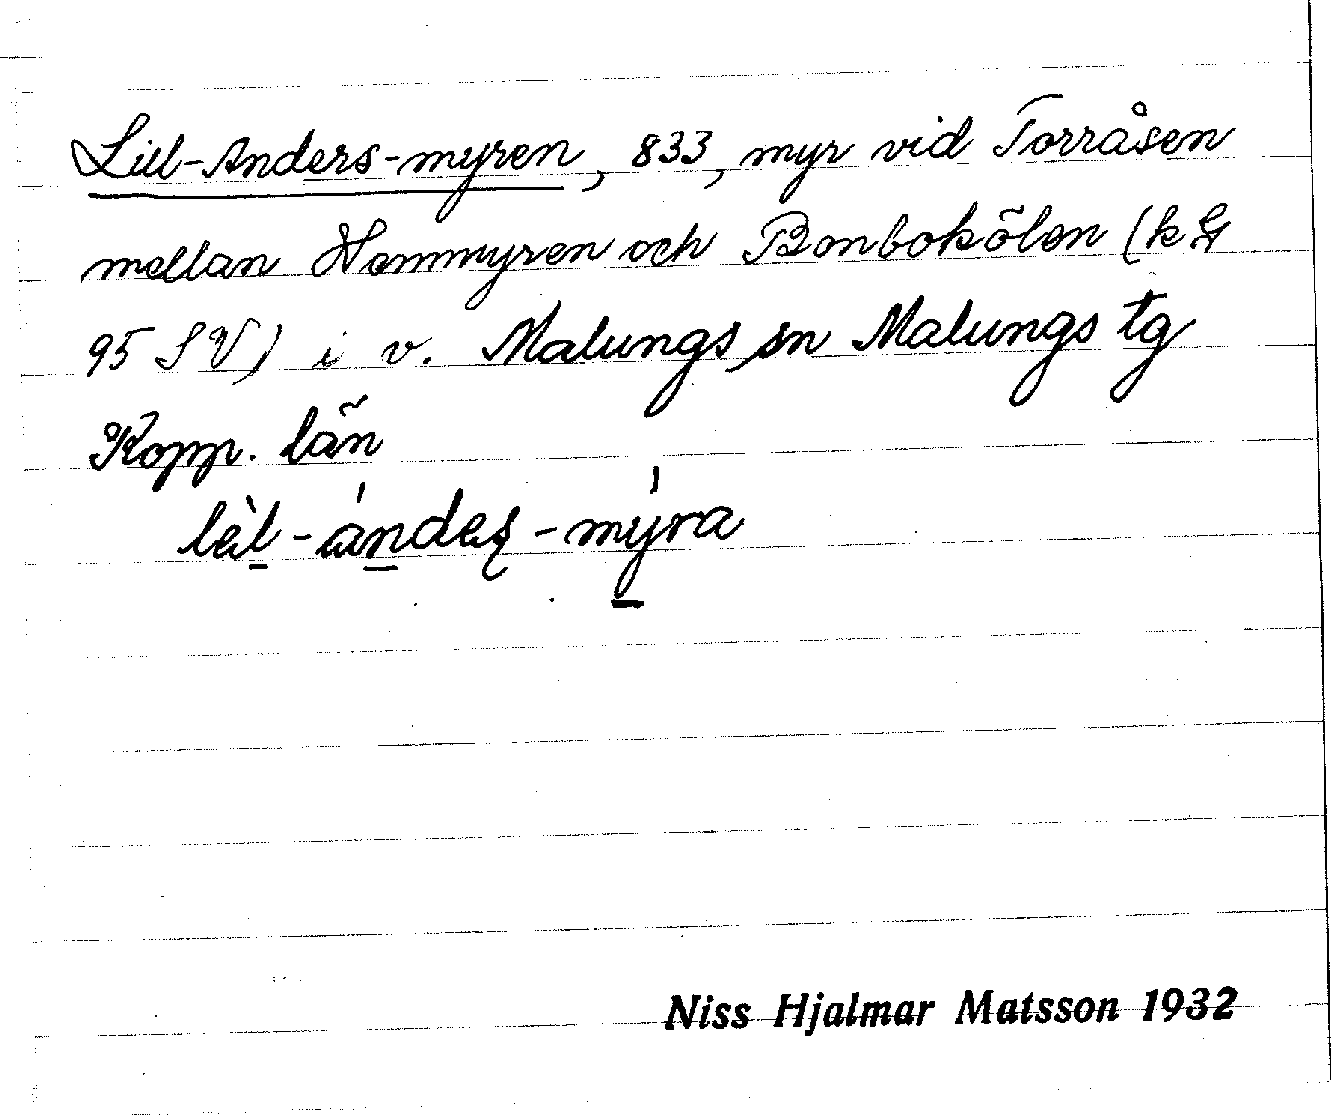 Lill-Anders-myren, 833, myr vid Torråsen
mellan Hommyren och Bonbokölen (k G
95 SV) i v. Malungs sn Malungs tg
Kopp. län
lèl-ándeʂ-mýra
Niss Hjalmar Matsson 1932